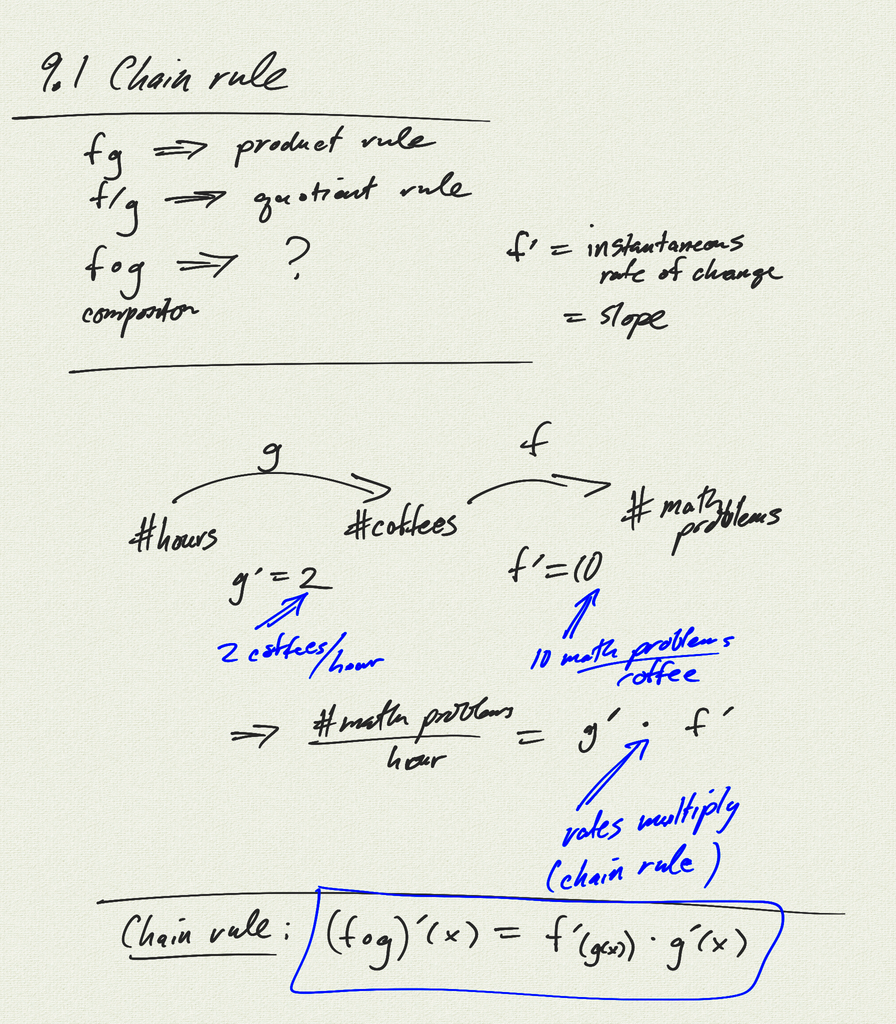 9.1 Chain rule
fg ⇒ product rule
f/g ⇒ quotient rule
f∘g ⇒ ?
composition
f' = instantaneous
rate of change
= slope
g
f
#hours
#coffees
# math
problems
g' = 2
f' = 10
2 coffees/hour
10 math problems
coffee
⇒ #math problems
hour
= g' · f'
rates multiply
(chain rule)
Chain rule: (f∘g)'(x) = f'(g(x)) · g'(x)